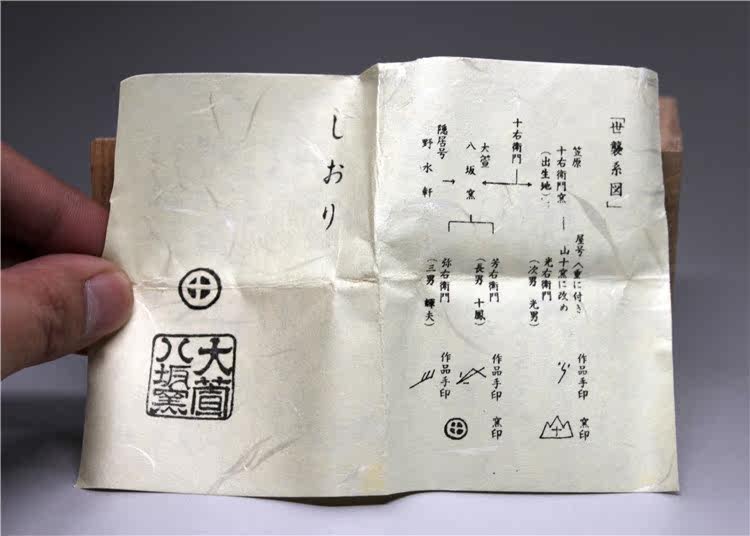 「世襲系図」
笠原
十右衛門窯
(出生地)
屋号(重に付き
山十窯に改め
光右衛門
(次男 光男)
作品手印
窯印
十右衛門
大萱
八坂窯
芳右衛門
(長男 十鳳)
作品手印
窯印
弥右衛門
(三男 輝夫)
作品手印
隠居号
野水軒
しおり
大萱
八坂窯